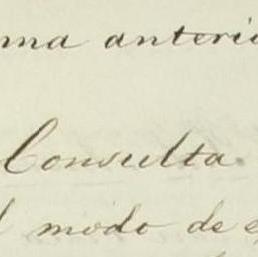 ma anterio
Consulta.
l modo de e